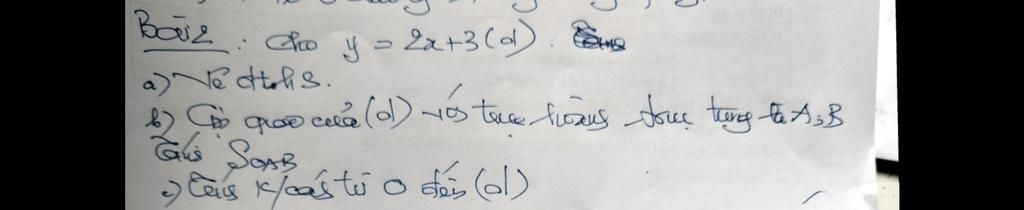 Bài 2: Cho y = 2x+3 (d).
a) Vẽ đths.
b) Gọi giao của (d) với trục hoành, trục tung là A, B
Tính SOAB
c) Tính k/cách từ O đến (d)